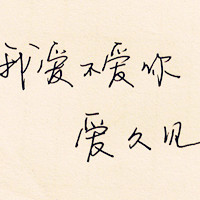 我爱不爱你
爱久见